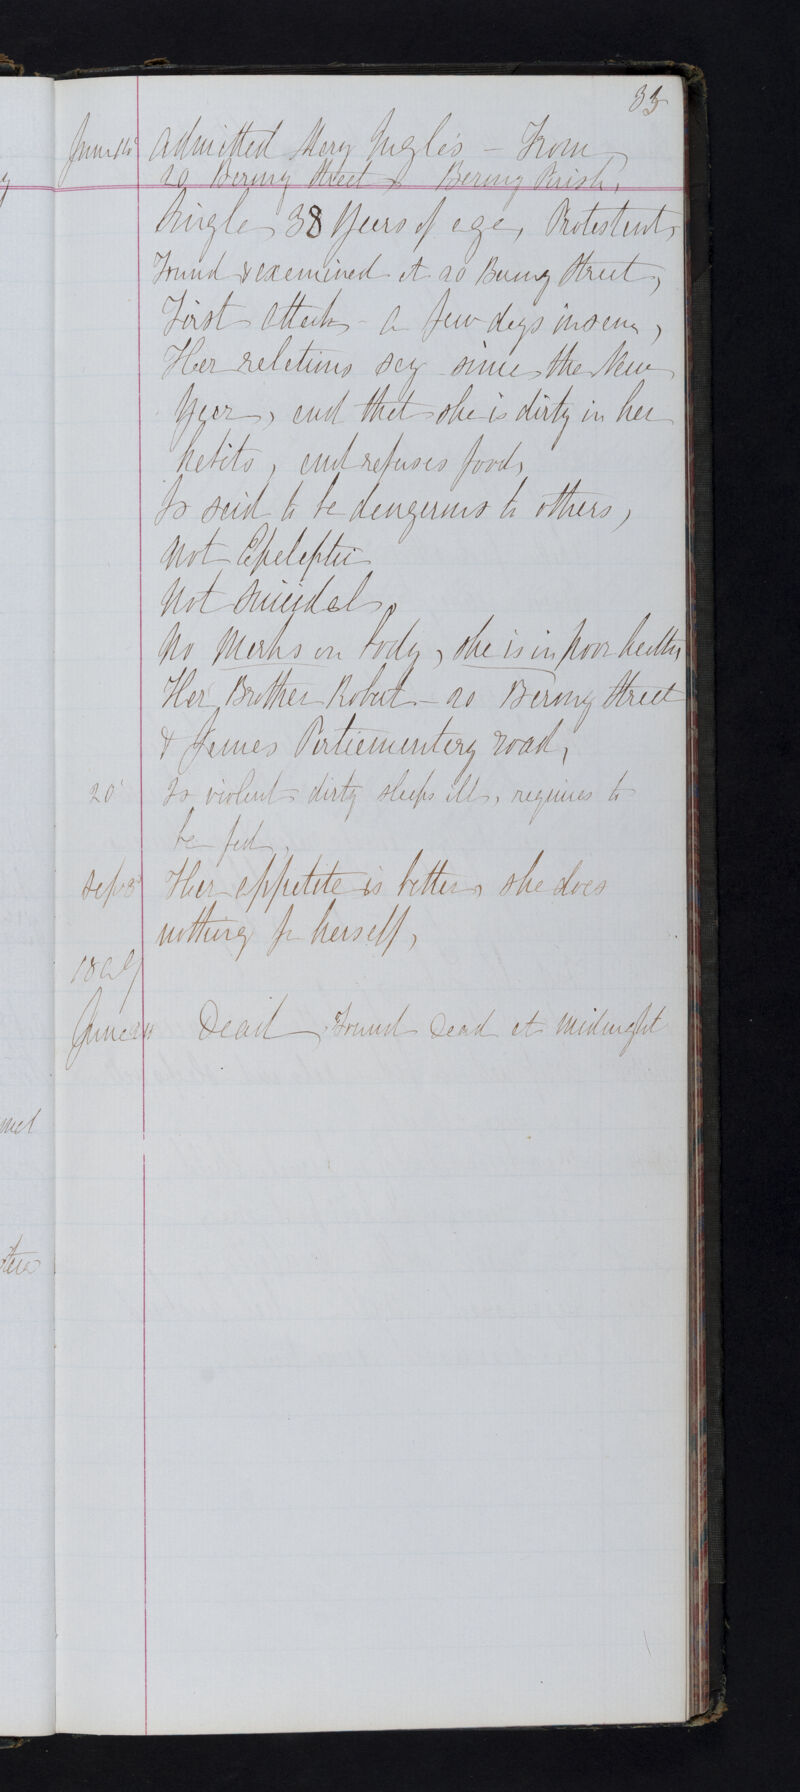 33
June 14 Admitted Mary Ingles - From
20 Barony Street & Barony Parish,
Single, 38 Years of age, Protestant,
Found & examined at 20 Barony Street,
First Attack - a few days insane,
Her relations say since the New
Year, and that she is dirty in her
habits, and refuses food,
Is said to be dangerous to others,
Not Epeleptic
Not Suicidal,
No Marks on body, she is in poor health
Her Brother Robert - 20 Barony Street
& James Parliamentary road,
20 Is violent dirty sleeps ill, requires to
be fed,
Sep 3d Her appetite is better, she does
nothing for herself,
June Dead, Found Dead at Midnight